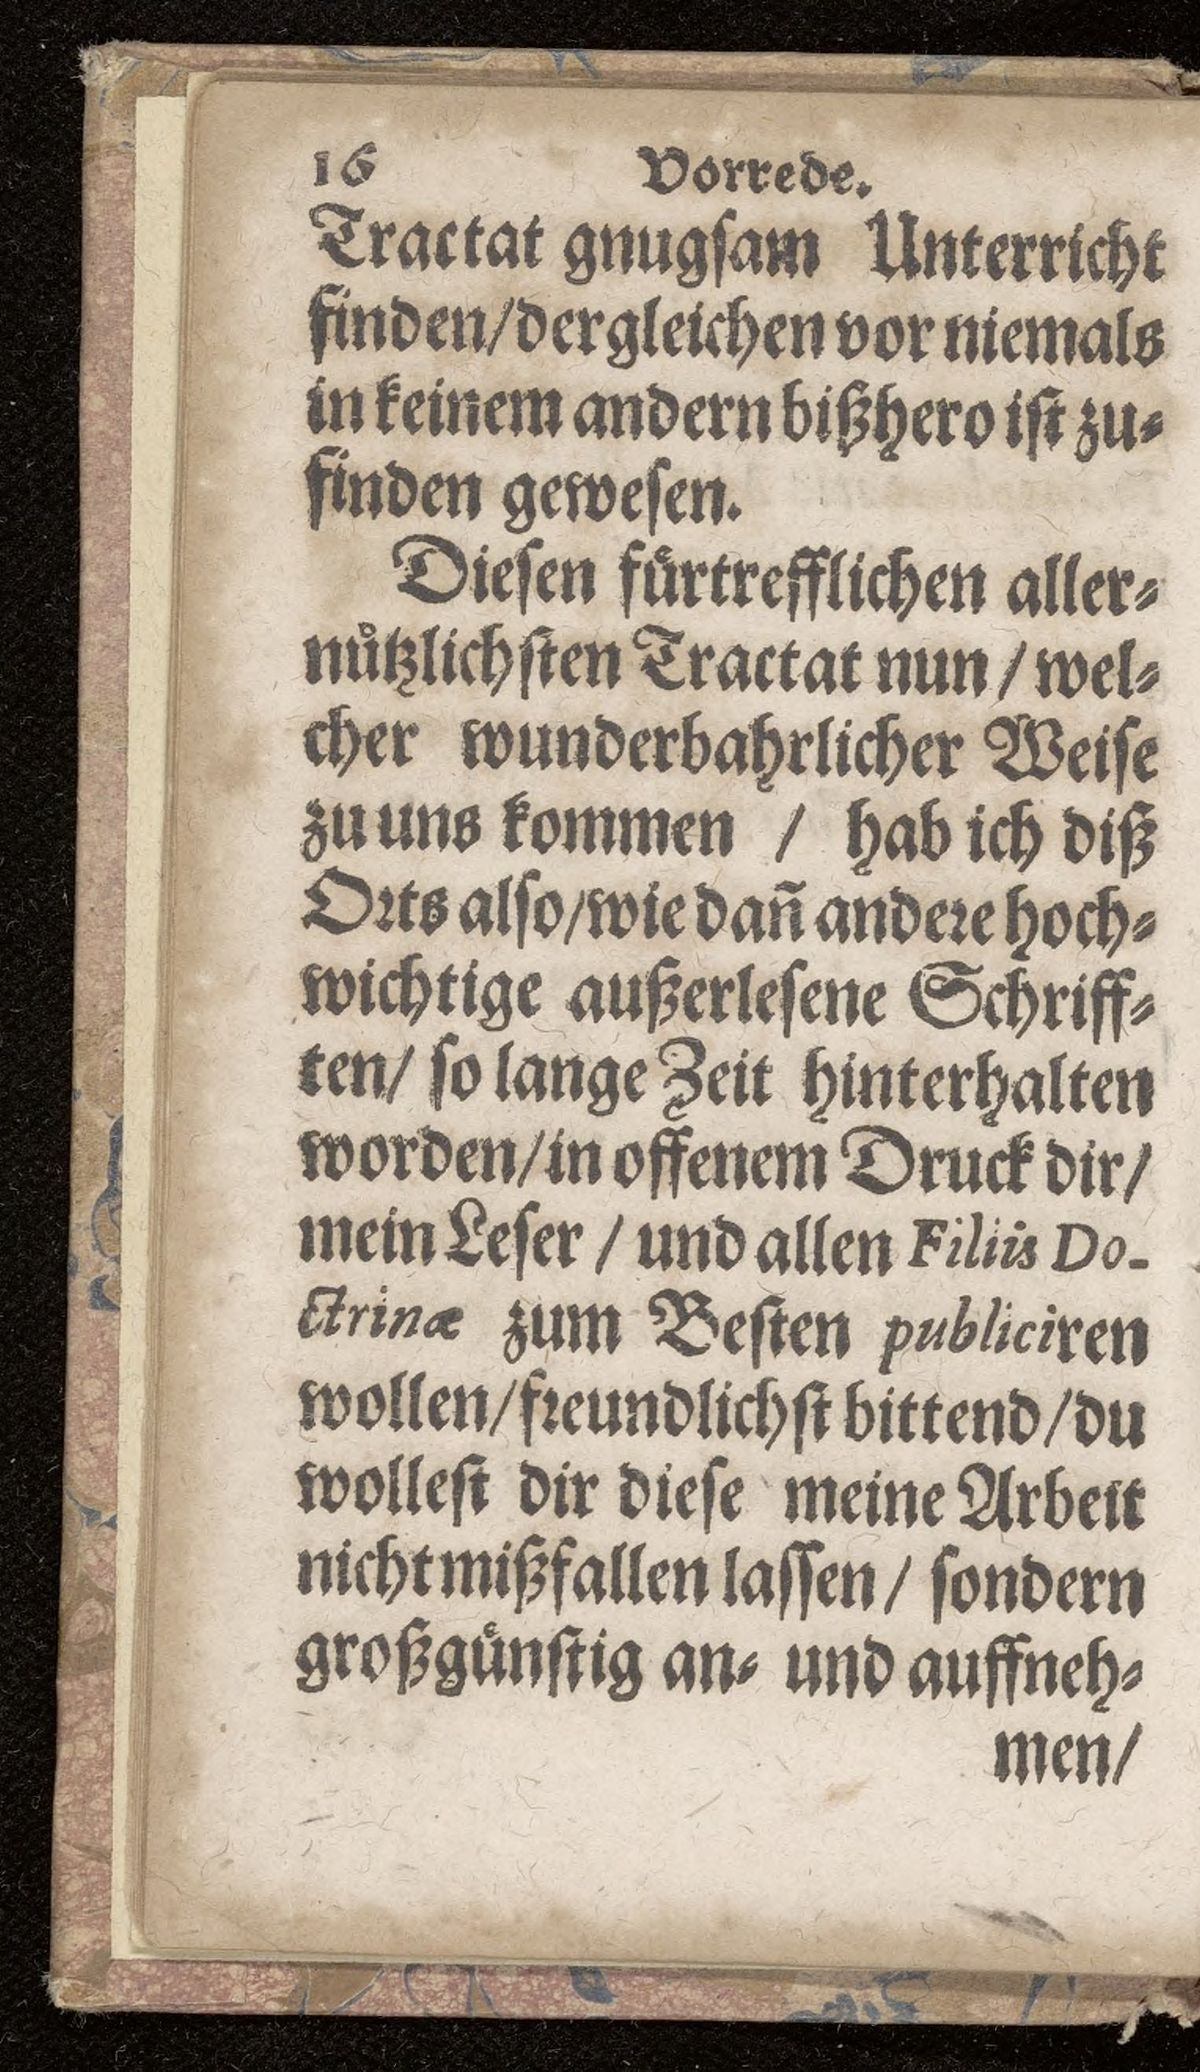 16 Vorrede.
Tractat gnugſam Unterricht
finden/dergleichen vor niemals
in keinem andern bißhero iſt zu⸗
finden gewesen.
Dieſen fuͤrtrefflichen aller⸗
nuͤtzlichſten Tractat nun / wel⸗
cher wunderbahrlicher Weiſe
zu uns kommen / hab ich diß
Oꝛts alſo/wie dan̄ andeꝛe hoch⸗
wichtige außerleſene Schriff⸗
ten/ ſo lange Zeit hinterhalten
worden/in offenem Druck dir/
mein Leſer / und allen Filiis Do-
ctrinæ zum Beſten publiciren
wollen/fꝛeundlichſt bittend/du
wolleſt dir dieſe meine Arbeit
nicht mißfallen laſſen/ ſondern
großguͤnſtig an⸗ und auffneh⸗
men/